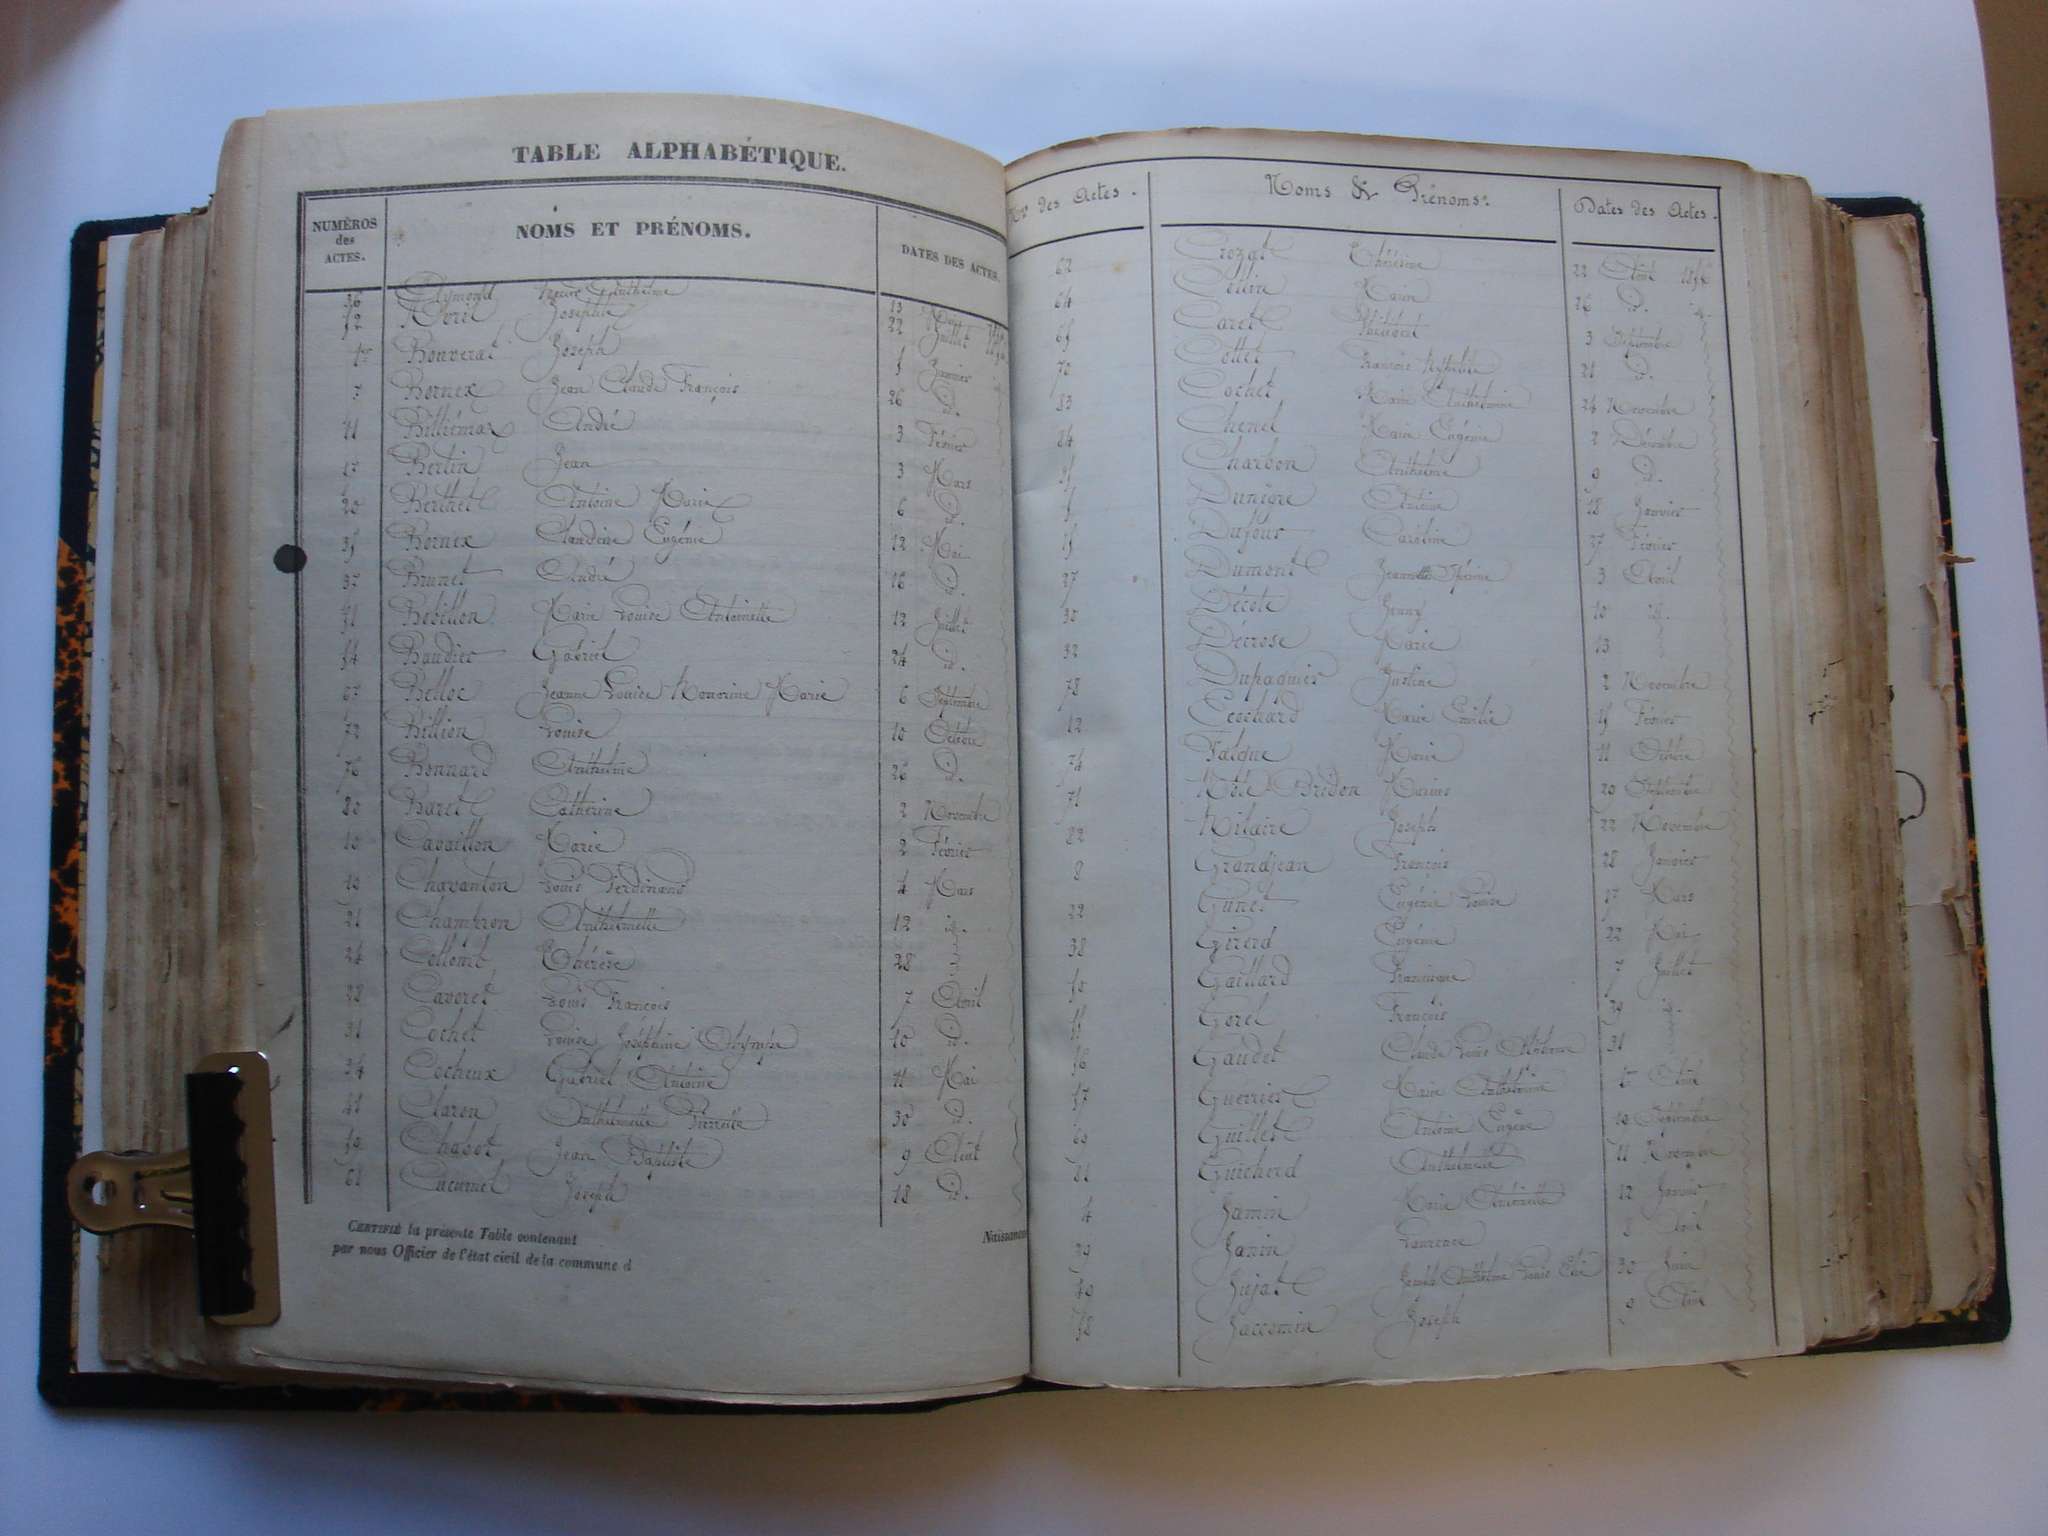 TABLE ALPHABÉTIQUE.
NUMÉROS des ACTES. NOMS ET PRÉNOMS. DATES DES ACTES.
36 Aymond Anthelme 13
52 Joseph 22 Juillet
1er Bonverat Joseph 5 Janvier
7 Bornex Jean Claude François 26 d.
11 Billiémaz André 3 Février
17 Bertin Jean 3 Mars
20 Berthet Antoine Marie 6 d.
35 Bornex Claudine Eugénie 12 Mai
37 Brunet André 16 d.
51 Robillon Marie Louise Antoinette 12 Juillet
54 Baudier Gabriel 24 d.
67 Belloc Jeanne Louise Honorine Marie 6 Septembre
72 Billion Louise 10 Octobre
76 Bonnard Anthelme 26 d.
80 Baret Catherine 2 Novembre
10 Cavaillon Marie 2 Février
Chavanton Louis Ferdinand 4 Mars
21 Champion Anthelmette 12 id.
24 Collomb Thérèse 28
28 Cavoret Louis François 7 Avril
31 Cochet Louise Joséphine 10 d.
34 Cocheux Gabriel Antoine 11 Mai
Claron Anthelmette Pierrette 30 d.
59 Chabot Jean Baptiste 9 Août
61 Cucurnet Joseph 18 d.
CERTIFIÉ la présente Table contenant Naissances
par nous Officier de l'état civil de la commune d
No des Actes. Noms & Prénoms. Dates des Actes.
62 Crozat Thérésine 22 Août
64 Marie 26 d.
65 Caret 3 Septembre
70 Collet François Hypolite 21 d.
83 Cochet Marie Anthelmine 24 Novembre
84 Chenel Marie Eugénie 2 Décembre
85 Charbon Anthelme 9 d.
5 Antoine 18 Janvier
15 Dufour Caroline 27 Février
27 Dumont Jeannette 3 Avril
30 Décote Jenny 10 id.
32 Décrose Marie 13
78 Dupaquier Justine 2 Novembre
12 Ecochard Marie Emilie 15 Février
74 Falque Marie 11 Octobre
71 Bridon Marius 29 Septembre
82 Hilaire Joseph 22 Novembre
8 Grandjean François 28 Janvier
22 Eugénie Louise 17 Mars
38 Girerd Eugénie 22 Mai
50 Gaillard Francisque 7 Juillet
55 Gorel François 29 id.
56 Gaudet Claude Louis Anthelme 31
57 Guerrier Marie 5 Août
69 Guillet Antoine Eugène 19 Septembre
81 Guicherd Anthelmette 11 Novembre
4 Jamin Marie Antoinette 12 Janvier
29 Janin Laurence 8 Avril
Jujat Joseph Anthelme Louis 30 Juin
58 Jaccomin Joseph 9 Août